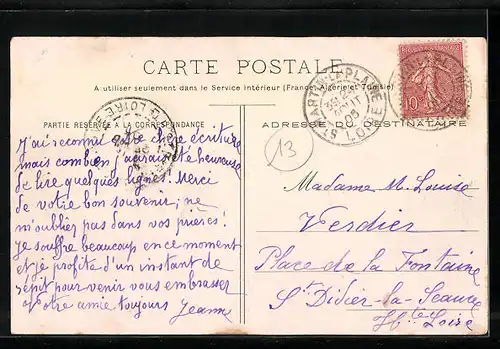 CARTE POSTALE
A utiliser seulement dans le Service Intérieur (France, Algérie et Tunisie)
PARTIE RESERVÉE A LA CORRESPONDANCE
J'ai reconnu votre chère écriture
mais combien j'aurais été heureuse
de lire quelques lignes! Merci
de votre bon souvenir; ne
m'oublier pas dans vos prières!
Je souffre beaucoup en ce moment
et je profite d'un instant de
répit pour venir vous embrasser
Votre amie toujours Jeanne
ADRESSE DU DESTINATAIRE
13
10
Madame M. Louise
Verdier
Place de la Fontaine
St Didier-la-Séauve
Hte Loire